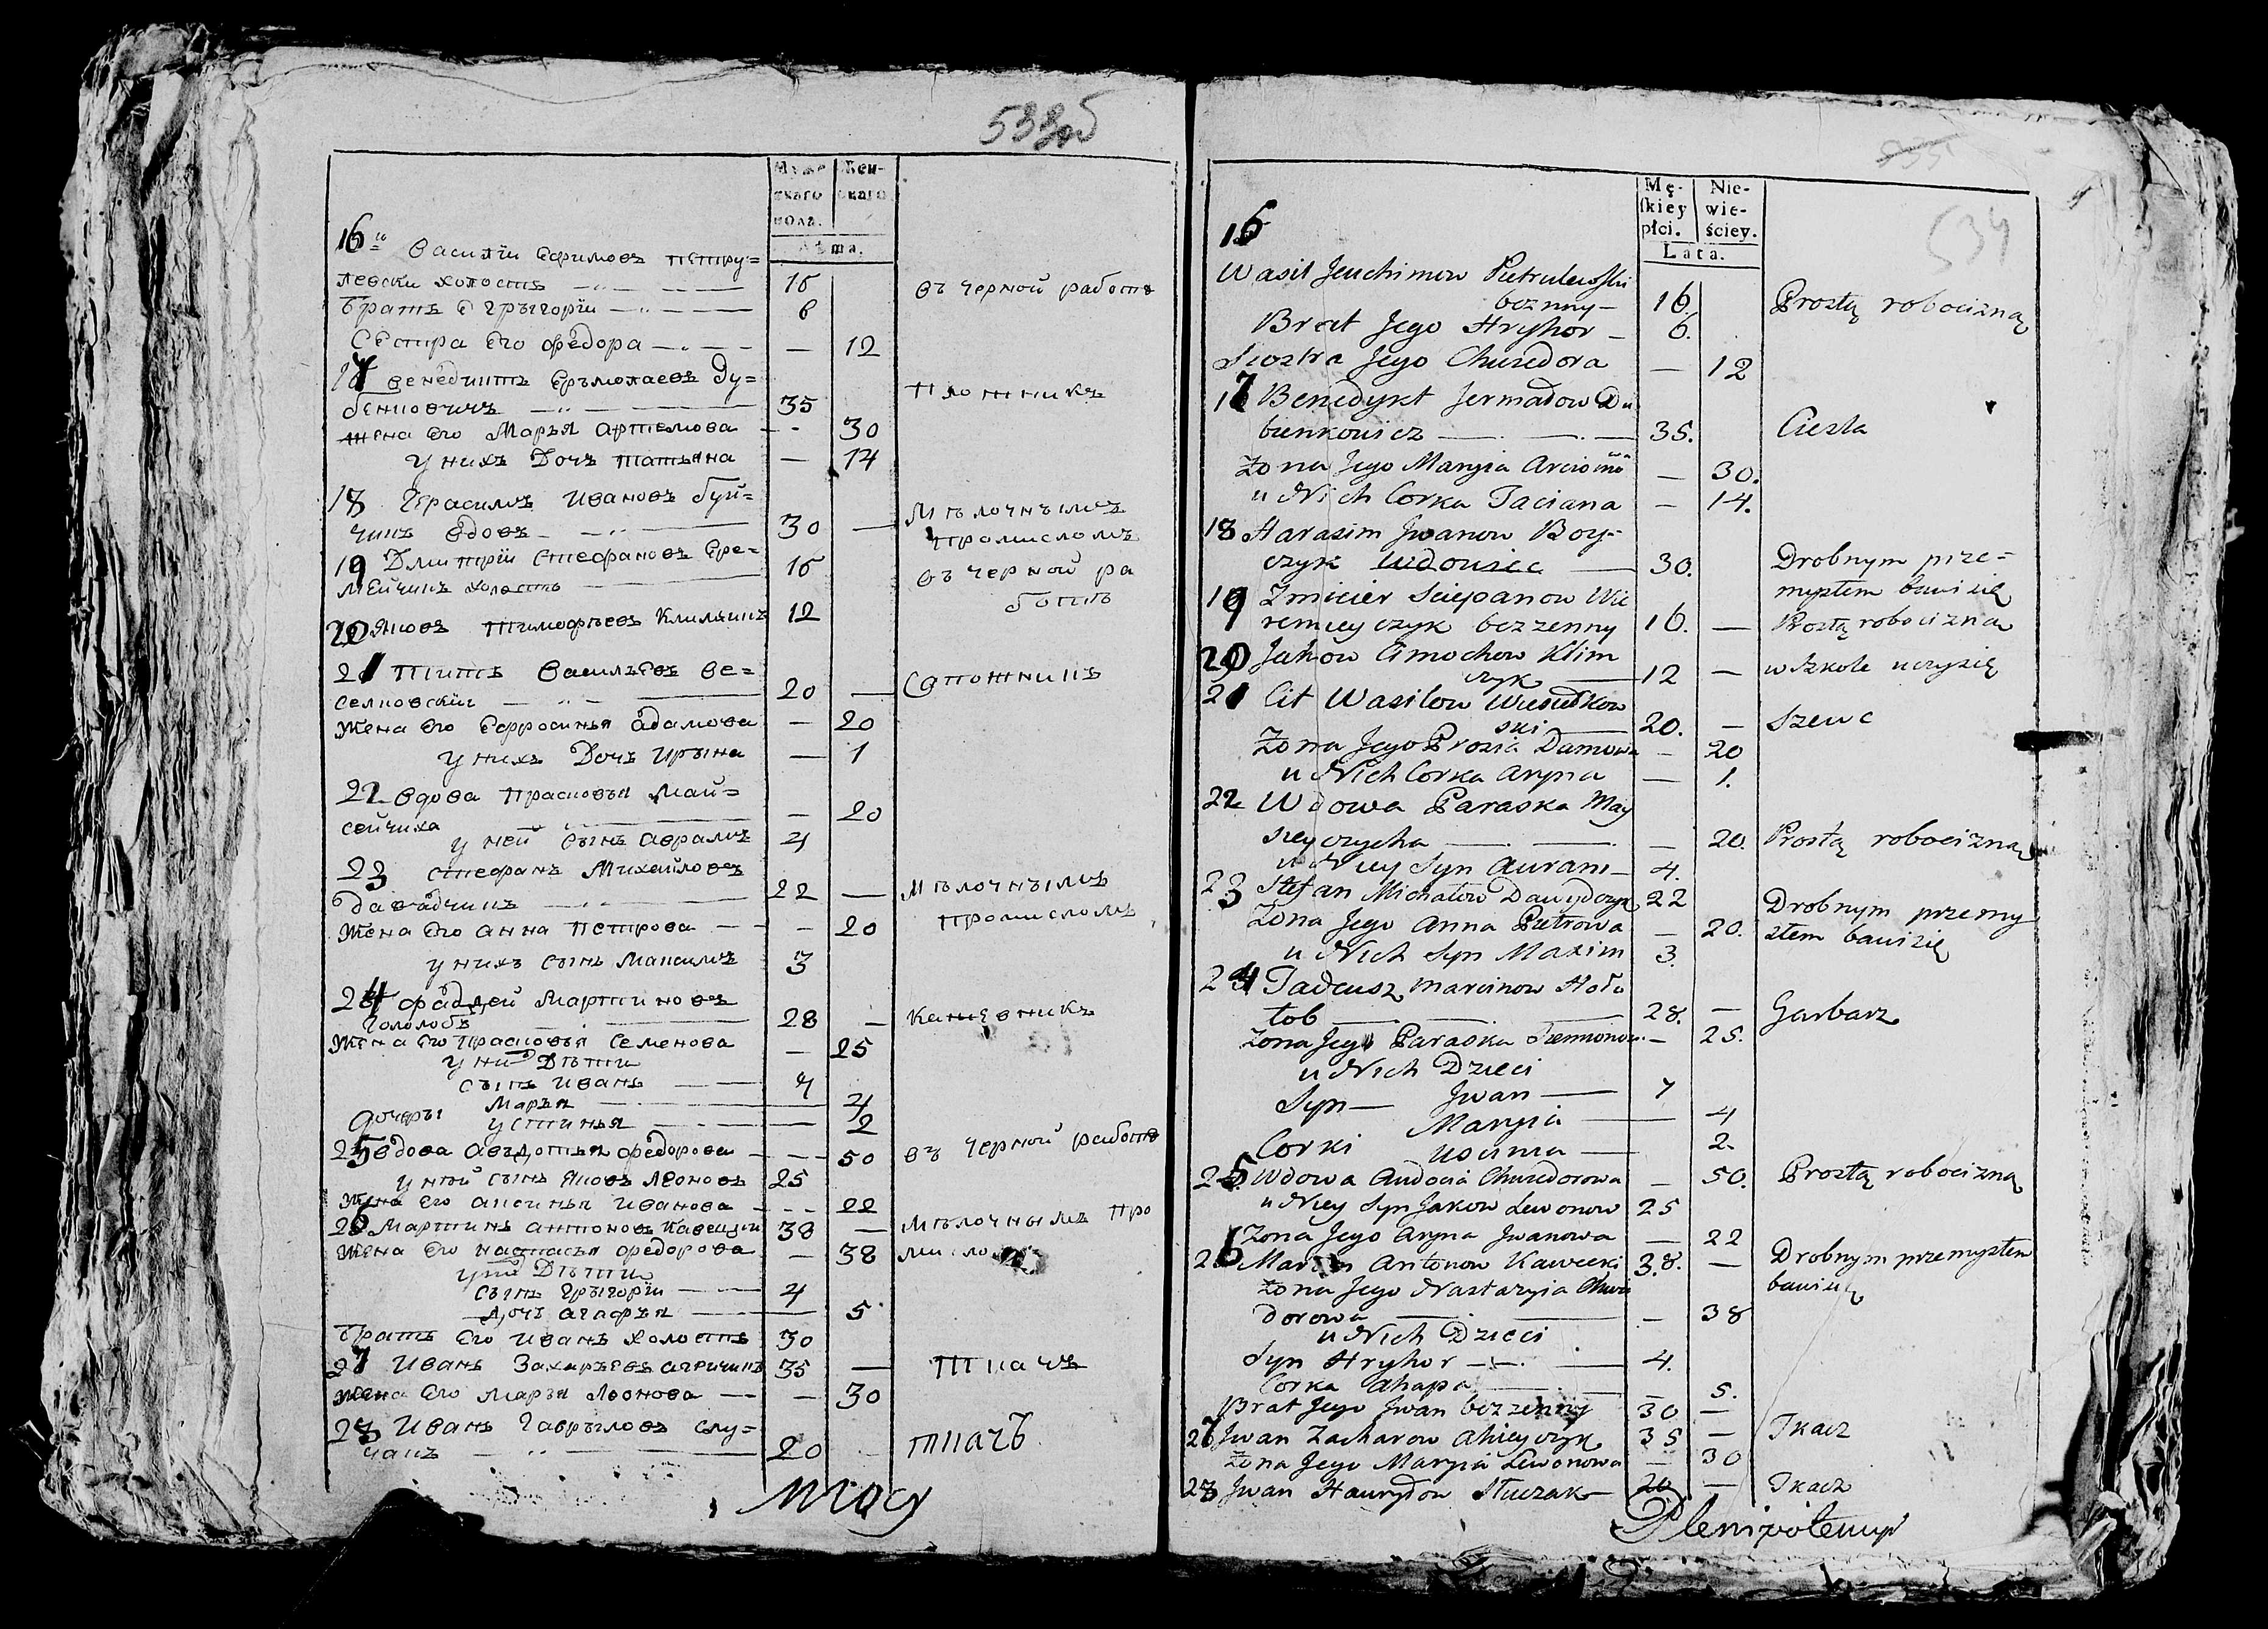 533об
Муже
скаго
пола.
Жен-
скаго
Лѣта.
16
Василїи Ефимовъ петру=
левски холостъ 16 въ черной работѣ
братъ Е Грыгорїи 6
Сестра Его федора — 12
17 Венедиктъ Еръмолаевъ Ду=
бенковичъ 35 плотникъ
жена Его Марья Артемова 30
у нихъ Дочь татьяна — 14
18 Герасимъ Ивановъ буй=
чикъ вдовъ 30 — Мѣлочнымъ
промисломъ
19 Дмитрїи Стефановъ Ере=
мейчикъ холостъ 16 въ черной ра
ботѣ
20 Яковъ Тимофѣевъ Климчикъ 12
21 Титъ Васильевъ Ве=
селковскїи 20 — Сапожникъ
жена Его Ефросинья адамова — 20
у нихъ Дочь Ирына — 1
22 вдова Прасковья Май=
сейчиха — 20
у ней сынъ аврамъ 4
23 Стефанъ Михайловъ
давадчикъ 22 — Мѣлочнымъ
жена Его анна Петрова — 20 промисломъ
у нихъ сынъ Максимъ 3
24 фаддей Мартиновъ
Гололобъ 28 — Кажевникъ
жена Его Прасковья Семенова — 25
у них Дѣти
сынъ Иванъ 7
Марья 4
дочеры устинья 2
25 вдова Авъдотья федорова 50 въ черной работѣ
у ней сынъ Яковъ Леоновъ 25
жена Его аксинья Иванова 22
26 Мартинъ антоновъ Кавецкии 38 — Мѣлочнымъ про
жена Его настасья федорова — 38 мисло
у них Дѣти
сынъ Грыгорїи 4
дочь агафья 5
братъ Его Иванъ холостъ 30
27 Иванъ Захаръевъ агейчикъ 35 — ткачъ
жена Его Марья Леонова — 30
28 Иванъ Гаврыловъ слу=
чакъ 20 ткачъ

534
Mę-
skiey
płci.
Nie-
wie-
ściey.
Lata.
16
Wasil Jeuchimow Pietrulewski
bezenny — 16. Prostą robocizną
Brat Jego Hryhor — 6.
Siostra Jego Chwiedora — 12
17 Benedykt Jermałow Du
bienkowicz 35. Ciesla
Zona Jego Maryia — 30.
u Nich Corka Taciana — 14.
18 Harasim Jwanow Boy-
czyk wdowiec 30. Drobnym prze=
mysłem bawi się
19 Zmicier Sciepanow Wie
remieyczyk bezzenny 16. — Prostą robocizną
20 Jakow Cimochow Klim
czyk 12 — w szkole uczy się
21 Cit Wasilow Wiesiełkow
ski 20. — Szewc
Zona Jego Prozia Damowa — 20
u Nich Corka Aryna — 1.
22 Wdowa Paraska May
sieyczycha — 20. Prostą robocizną
u Niey Syn Auram — 4.
23 Stefan Michałow Dawydczyk 22 Drobnym przemy
Zona Jego Anna Pietrowa — 20. słem bawi się
u Nich Syn Maxim 3.
24 Tadeusz Marcinow Hoło
łob 28. — Garbarz
Zona Jego Paraska Siemionow. — 25.
u Nich Dzieci
Syn — Jwan 7
Maryia — 4
Corki Uscinia — 2.
25 Wdowa Audocia Chwiedorowa — 50. Prostą robocizną
u Niey Syn Jakow Lewonow 25
Zona Jego Aryna Jwanowa — 22
26 Marcin Antonow Kawecki 38. — Drobnym przemysłem
Zona Jego Nastazyia Chwie bawi się
dorowa — 38
u Nich Dzieci
Syn Hryhor 4.
Corka Ahapa — 5.
Brat Jego Jwan bezzenny 30 —
27 Jwan Zacharow Ahieyczyk 35 — Tkacz
Zona Jego Maryia Lewonowa — 30
28 Jwan Hauryłow Słuczak 20 — Tkacz